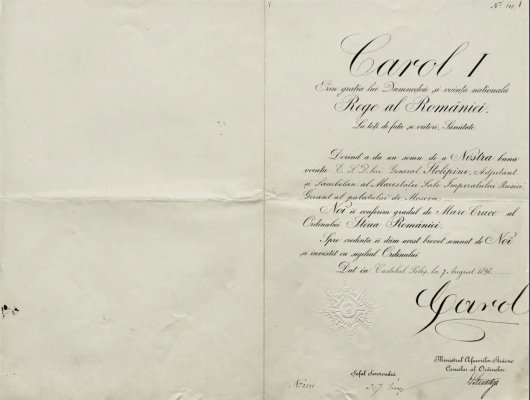 Carol I
Prin grația lui Dumnedeu și voința națională
Rege al României.
La toți de față și viitori, Sănătate.
Dorind a da un semn de a Nostra bună
voință E. S. D-lui General Stolipine, Adjutant
și Șambelan al Maiestaței Sale Imperatului Rusiei,
Gerant al palatului de Moscva,
Noi îi conferim gradul de Mare Cruce al
Ordinului Steua României.
Spre credință îi dăm acest brevet semnat de Noi
și investit cu sigiliul Ordinului
Dat în Castelul Peleș la 7 August
Carol
Ministrul Afacerilor Străine
Cancelar al Ordinelor
Șeful Serviciului